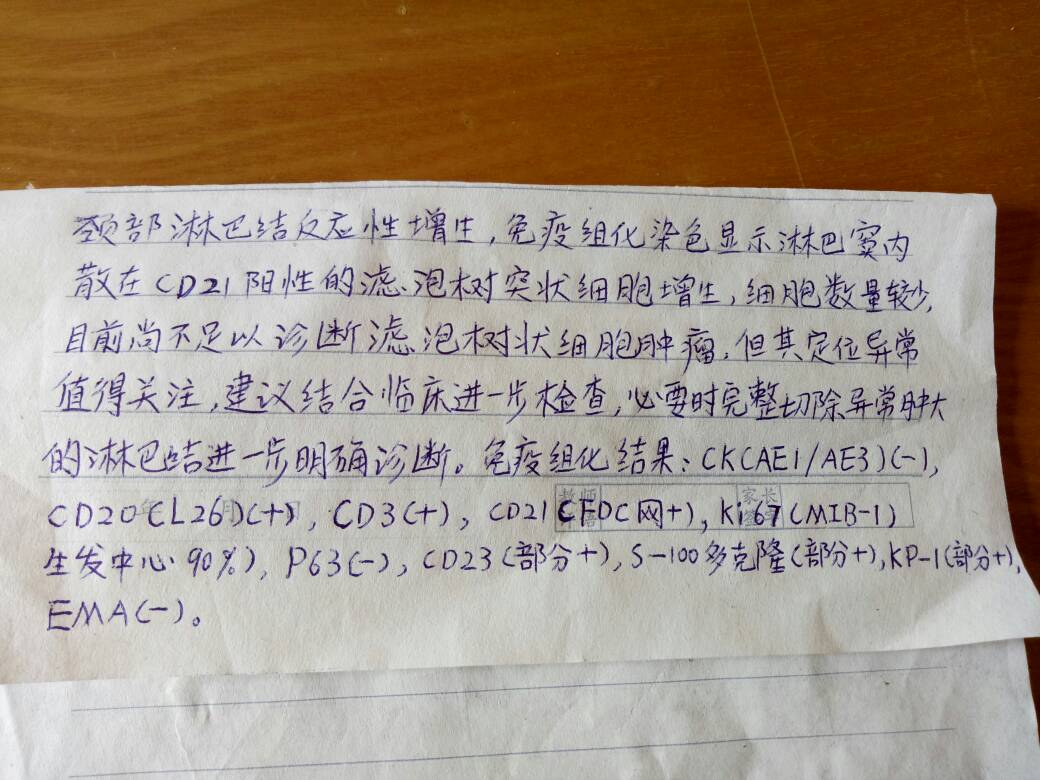 颈部淋巴结反应性增生,免疫组化染色显示淋巴窦内
散在CD21阳性的滤泡树突状细胞增生,细胞数量较少,
目前尚不足以诊断滤泡树状细胞肿瘤,但其定位异常
值得关注,建议结合临床进一步检查,必要时完整切除异常肿大
的淋巴结进一步明确诊断。免疫组化结果:CK(AE1/AE3)(-),
CD20(L26)(+),CD3(+),CD21(FDC网+),Ki67(MIB-1)
生发中心90%),P63(-),CD23(部分+),S-100多克隆(部分+),KP-1(部分+),
EMA(-)。